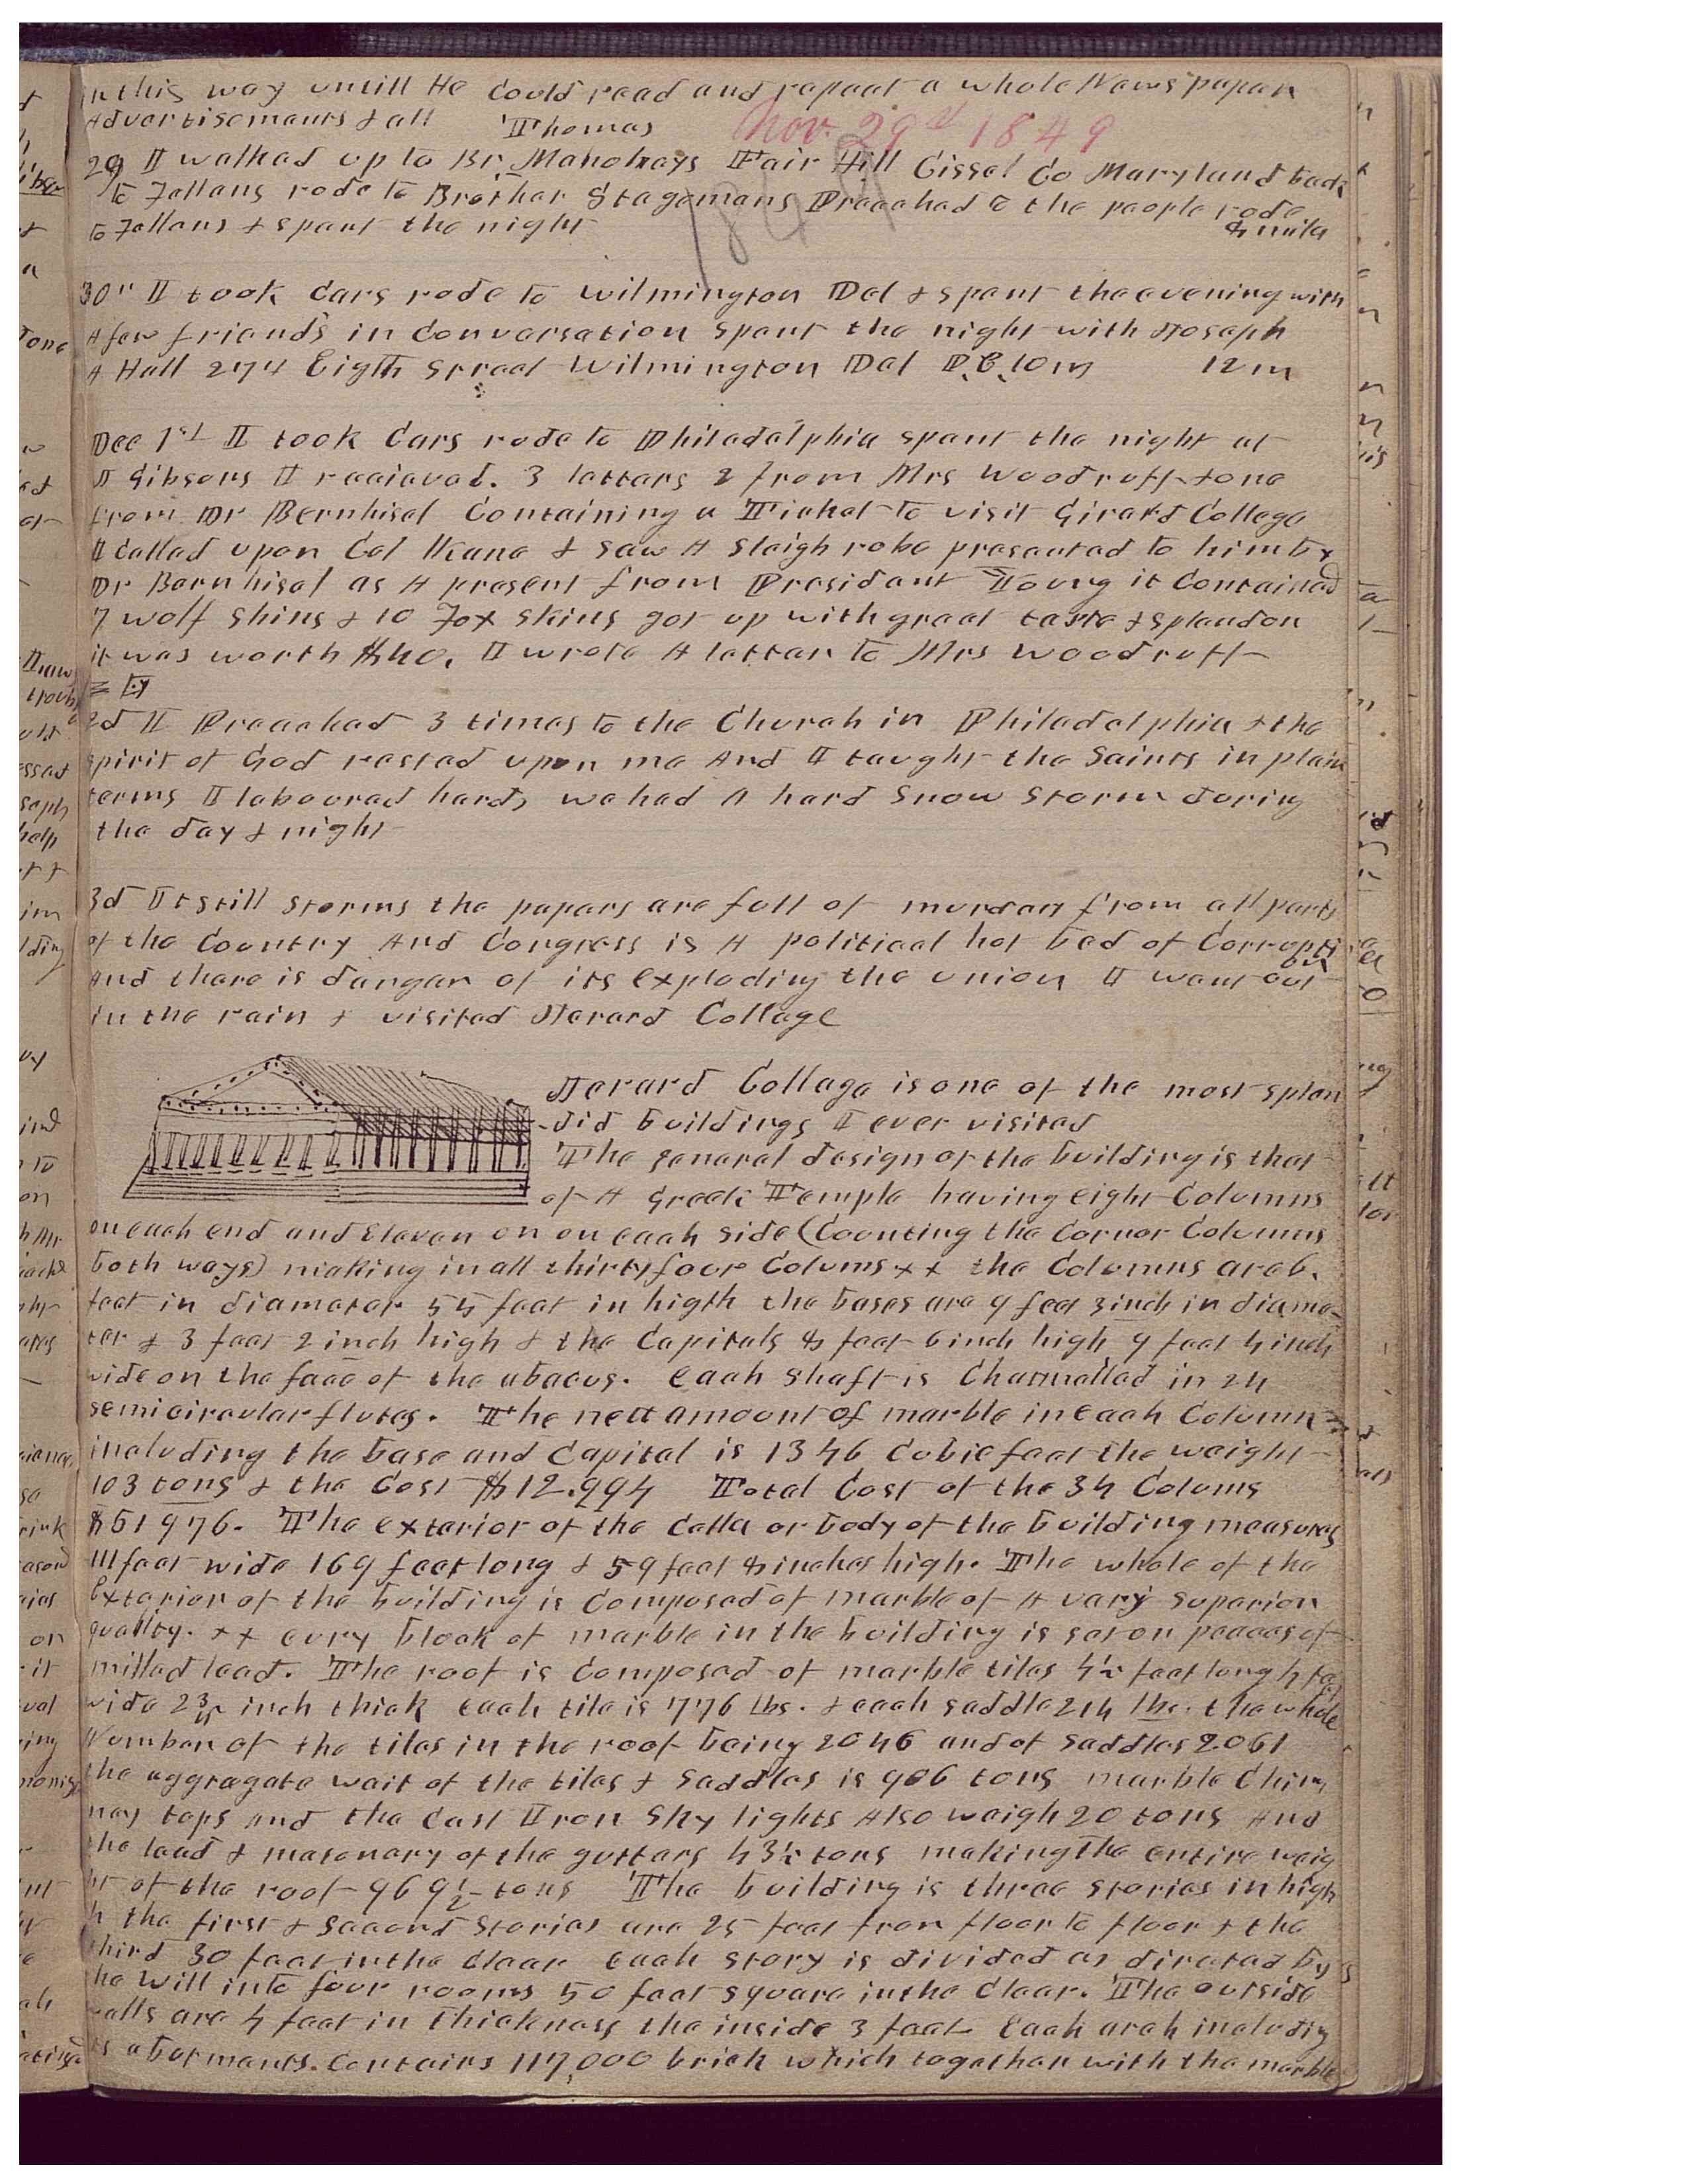 in this way untill He could read and repeat a whole Newspaper
Advertisements & all Thomas
Nov. 29th 1849
1849
29 I walked up to Br. Mahoneys Fair Hill Cissel Co Maryland back
to Fellows rode to Brother Stagemans Preached to the people rode
to Fellows & spent the night 4 mile
30" I took Cars rode to Wilmington Del & spent the evening with
A few friends in Conversation spent the night with Joseph
A Hall 274 Eigth Street Wilmington Del P.C. 10 m 12 m
Dec 1st I took Cars rode to Philadelphia spent the night at
J Gibsons I received. 3 letters 2 from Mrs Woodruff & one
from Dr Bernhisel Containing a Ticket to visit Girard College
I called upon Col Kane & saw A Sleigh robe presented to him by
Dr Bernhisel as A present from President Young it Contained
7 wolf skins & 10 Fox skins got up with great taste & splendor
it was worth $40. I wrote A letter to Mrs Woodruff
2d I Preached 3 times to the Church in Philadelphia & the
spirit of God rested upon me And I taught the Saints in plain
terms I laboured hard, we had A hard Snow Storm during
the day & night
3d It still storms the papers are full of murder from all parts
of the Country And Congress is A politicel hot bed of Corrupti
on
And there is danger of its exploding the union I went out
in the rain & visited Jerard College
Jerard College is one of the most splen
-did buildings I ever visited
The general design of the building is that
of A Greek Temple having eight Columns
on each end and Eleven on on each side (Counting the Corner Columns
both ways) making in all thirty four Colums xx the Columns are 6.
feet in diameter 55 feet in higth the bases are 9 feet 3 inch in diame-
ter & 3 feet 2 inch high & the Capitals 8 feet 6 inch high 9 feet 4 inch
wide on the face of the abacus. each shaft is Channelled in 24
semicircular flutes. The nett amount of marble in each Column
including the base and Capital is 1346 Cubic feet the weight
103 tons & the Cost $12.994 Total Cost of the 34 Colums
$51976. The exterior of the Cella or body of the building measures
111 feet wide 169 feet long & 59 feet 4 inches high. The whole of the
Exterior of the building is Composed of marble of A very superior
quality. xx evry block of marble in the building is set on peaces of
milled lead. The roof is Composed of marble tiles 4½ feet long 4 feet
wide 2¾ inch thick each tile is 776 lbs. & each saddle 214 lbs. the whole
Number of the tiles in the roof being 2046 and of Saddles 2061
the aggregate wait of the tiles & saddles is 906 tons marble Chim
ney tops and the Cast Iron Sky lights Also weigh 20 tons And
the lead & masonary of the gutters 43½ tons making the entire weig
ht of the roof 969½ tons The building is three stories in high
h the first & second Stories are 25 feet from floor to floor & the
third 30 feet in the Clear each story is divided as directed by
he will into four rooms 50 feet square in the Clear. The outside
walls are 4 feet in thickness the inside 3 feet Each arch includig
its abetments. Contains 117,000 brick which together with the marble